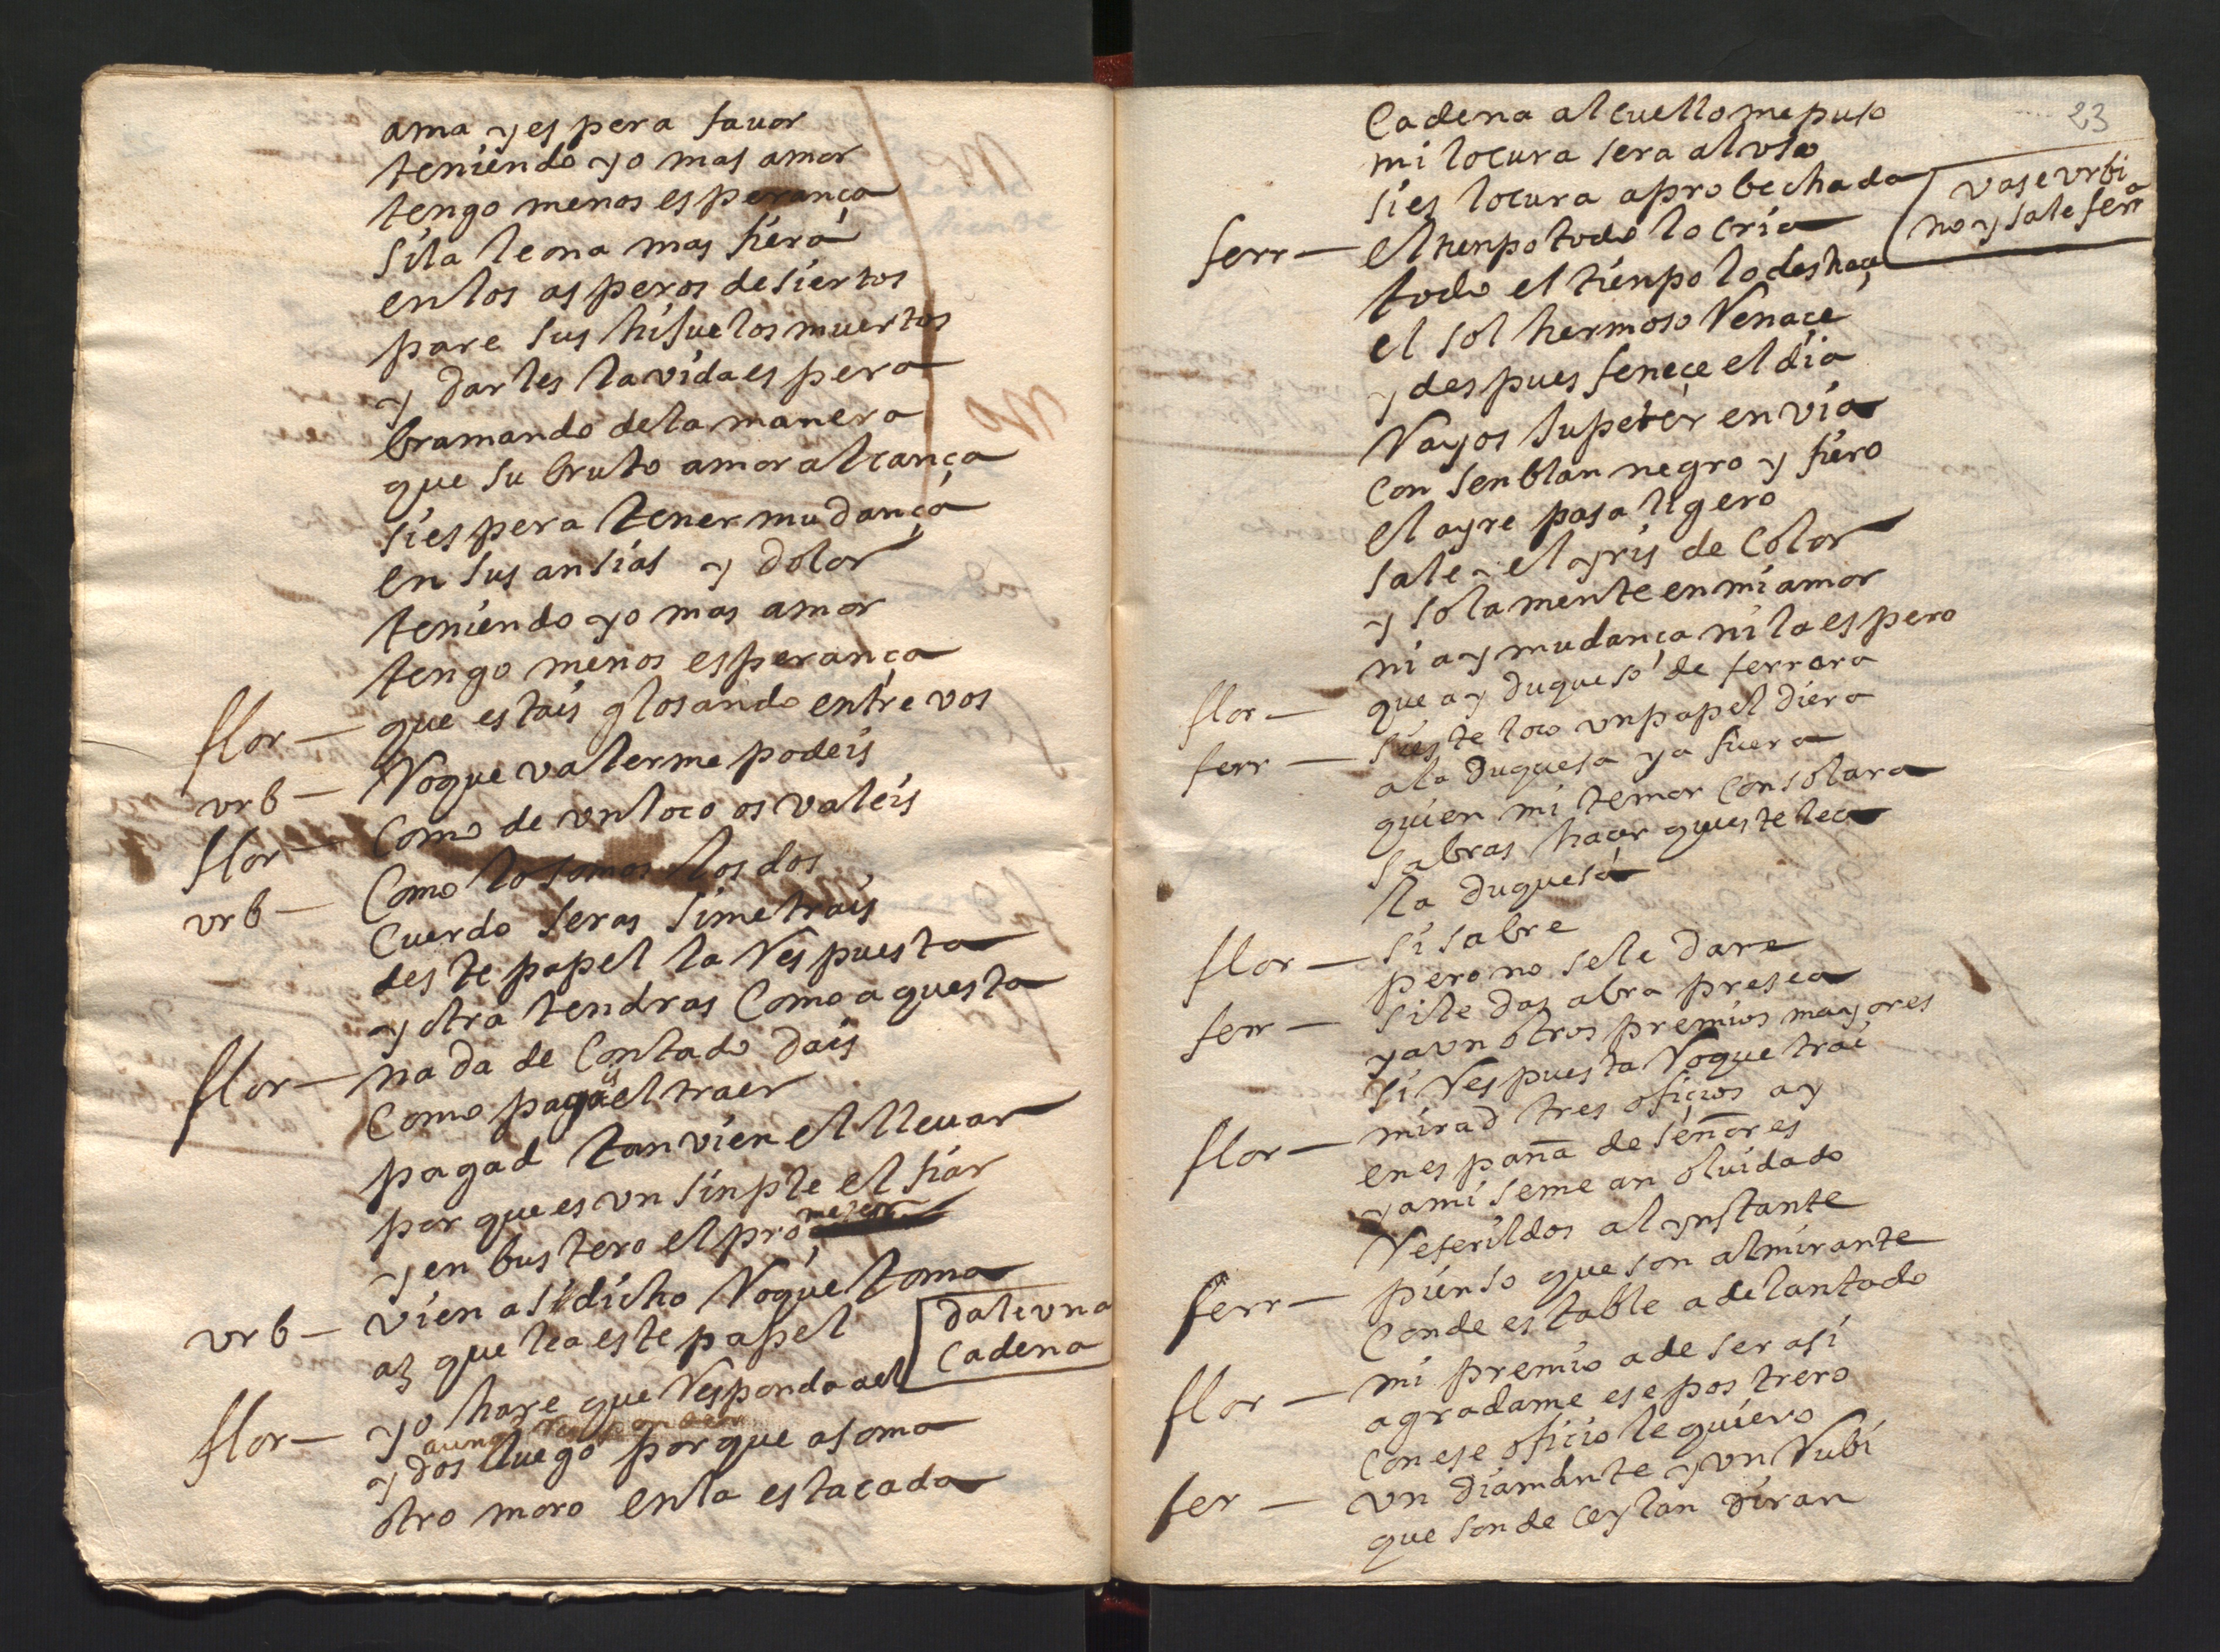 ama y espera fauor
teniendo yo mas amor
tengo menos esperança
si la leona mas fiera
en los asperos desiertos
pare sus hijuelos muertos
y darles la vida espera
bramando de la manera
que su bruto amor alcança
si espera tener mudança
en sus ansias y dolor
teniendo yo mas amor
tengo menos esperança
flor — que estais glosando entre vos
vrb — Roque valerme podeis
flor — Como de vn loco os valeis
vrb — Como lo somos los dos
Cuerdo seras si me trais
deste papel la Respuesta
y otra tendras Como aquesta
flor — nada de Contado dais
Como pagais el traer
pagad tanvien el lleuar
por que es vn sinple el fiar
y enbustero el prometer
vrb — vien as dicho Roque toma
az que lea este papel
dale vna
Cadena
flor — yo hare que Responda a el
aunq
y dos luego porque asoma
otro moro en la estacada
23
Cadena al cuello me puso
mi locura sera al vso
si es locura aprobechada
vase vrbi
no y sale ferra
ferr — el tienpo todo lo cria
todo el tienpo lo deshaçe
el sol hermoso Renaçe
y despues feneçe el dia
Rayos Jupiter envia
Con senblan negro y fiero
el ayre pasa ligero
sale el yris de Color
y solamente en mi amor
ni ay mudança ni la espero
flor — que ay duqueso de ferrara
ferr — si este loco vn papel diera
a la duquesa ya fuera
quien mi temor Consolara
sabras haçer queste lea
la duquesa
flor — si sabre
pero no se le dare
ferr — si le das abra presea
y avn otros premios mayores
si Respuesta Roque trai
flor — mirad tres ofiçios ay
en españa de señores
y a mi se me an oluidado
Referildos al ynstante
ferr — pienso que son almirante
Condestable adelantado
flor — mi premio a de ser asi
agradame ese postrero
Con ese ofiçio le quiero
fer — vn diamante y vn Rubi
que son de Ceylan diran